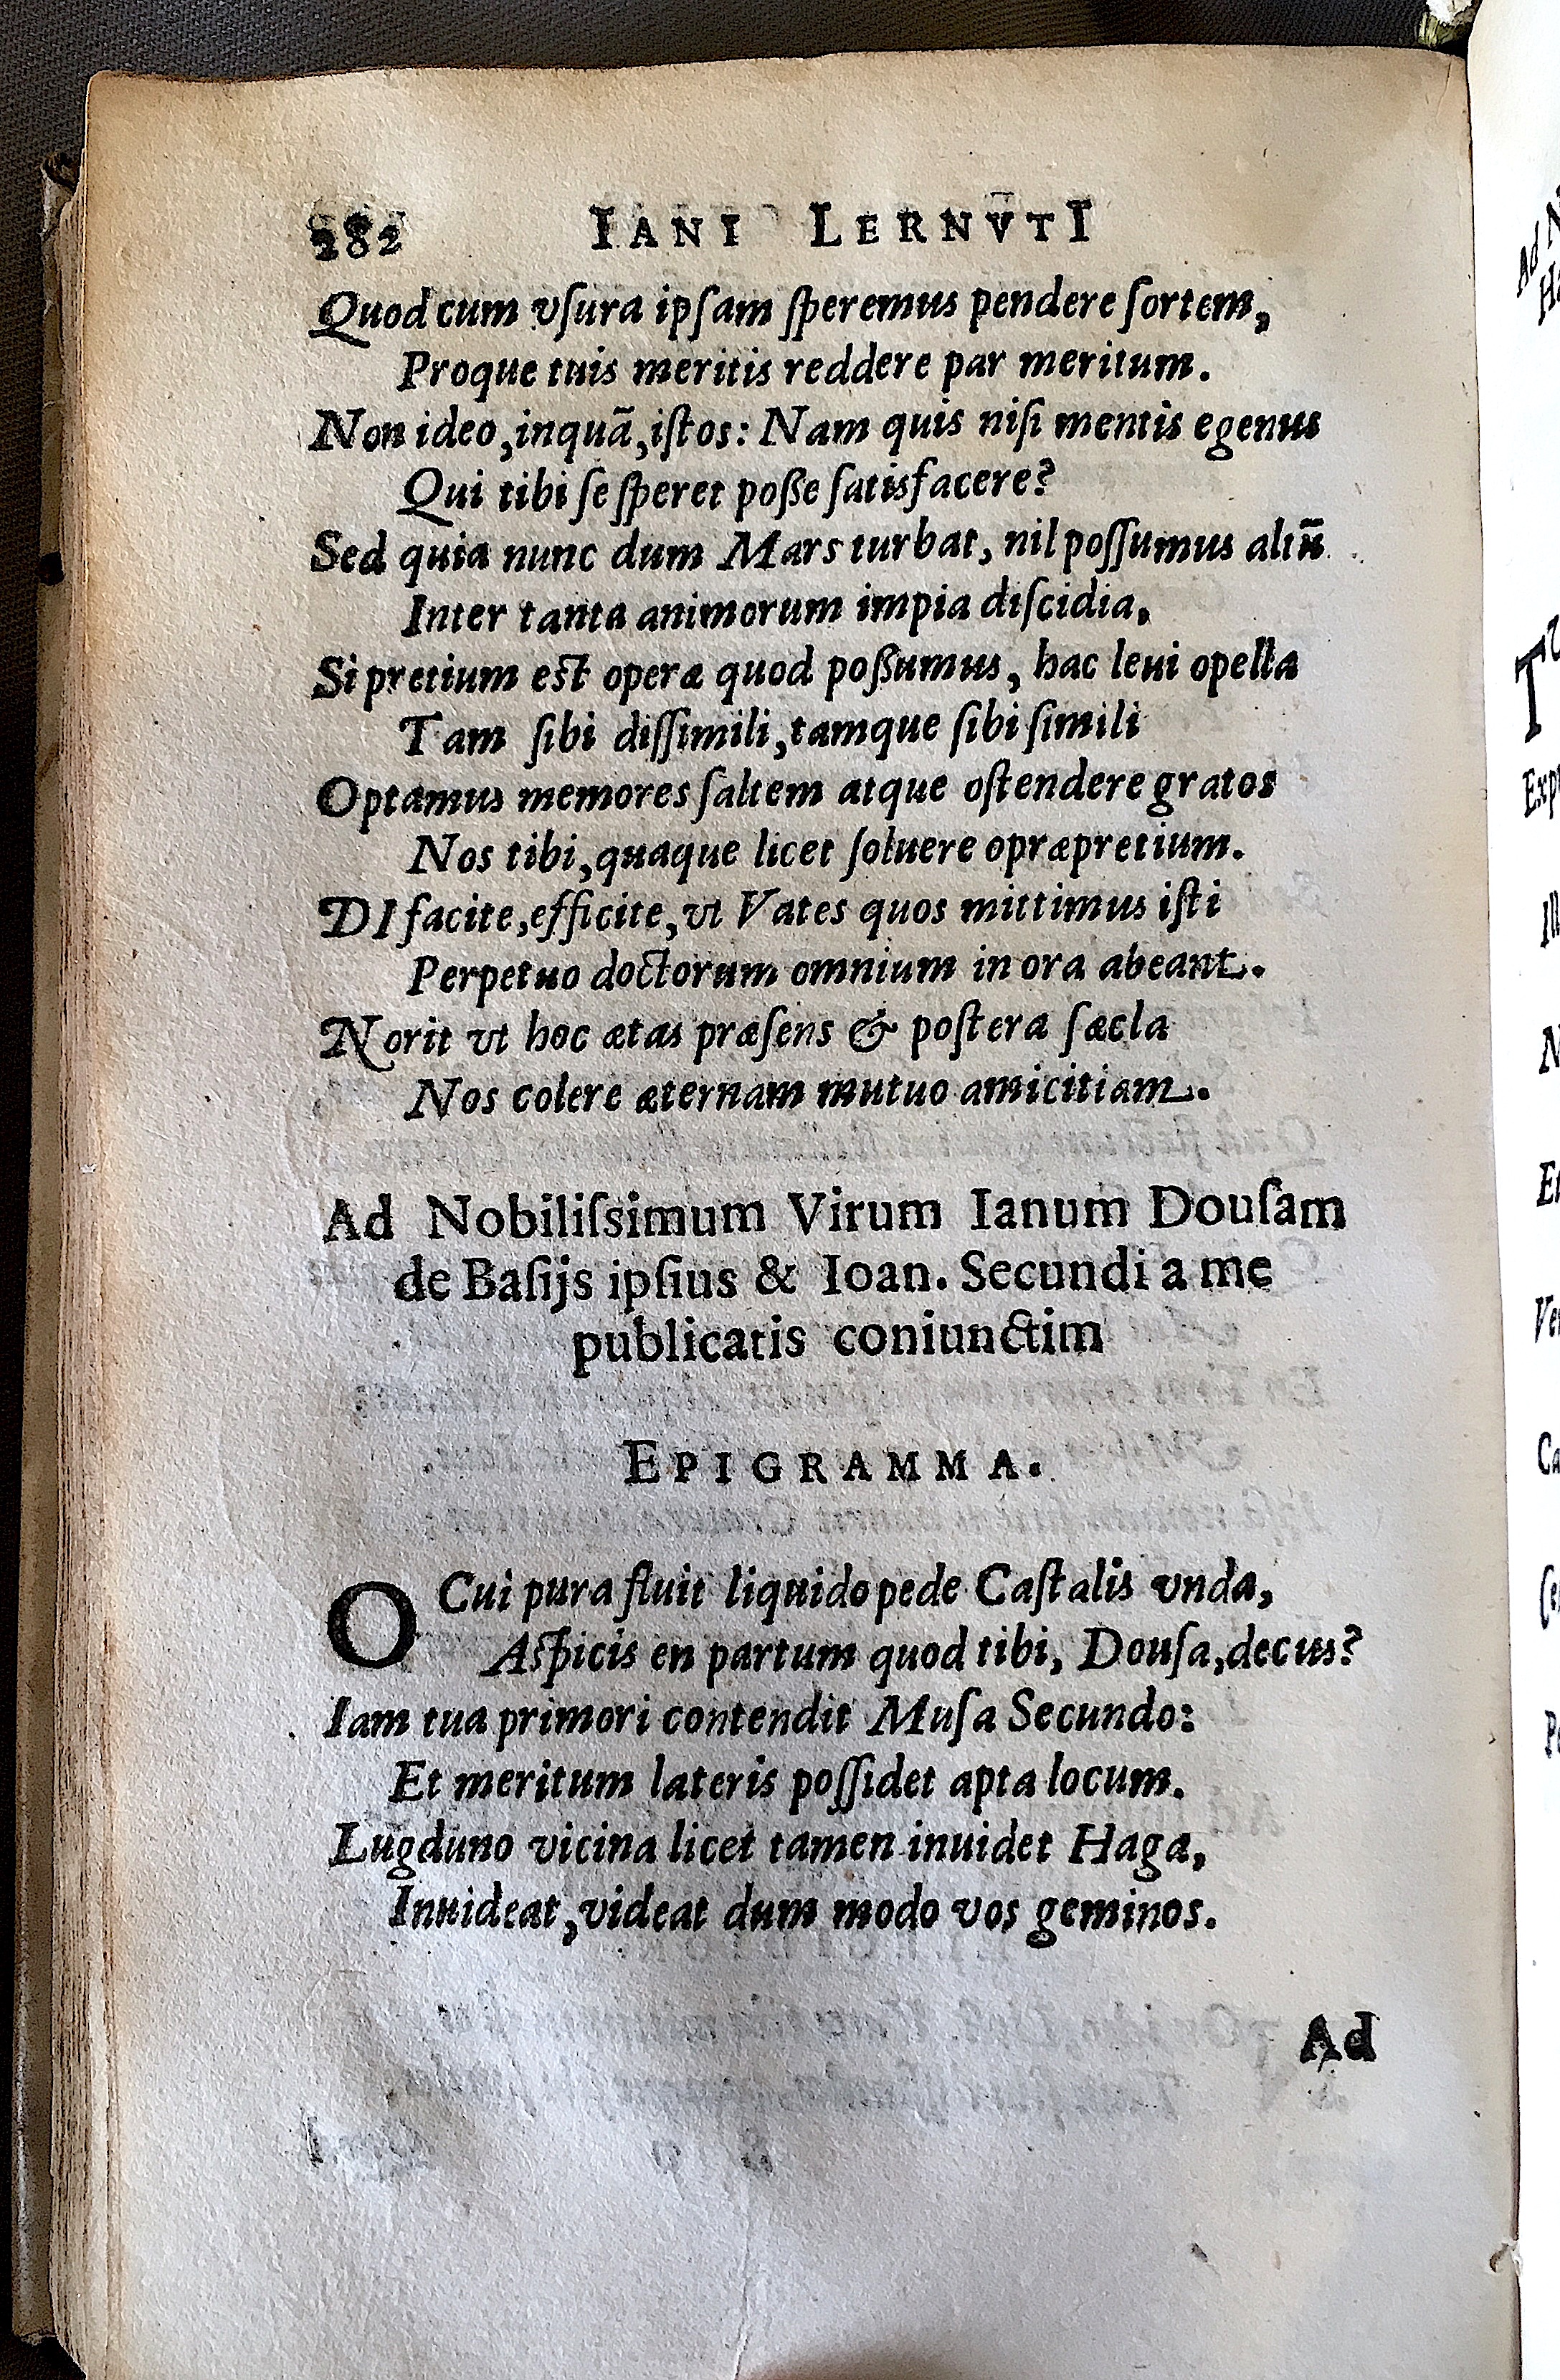 282 IANI LERNVTI
Quod cum vſura ipſam ſperemus pendere ſortem,
Proque tuis meritis reddere par meritum.
Non ideo, inquã, iſtos: Nam quis niſi mentis egenus
Qui tibi ſe ſperet poße ſatisfacere?
Sed quia nunc dum Mars turbat, nil poſſumus aliũ
Inter tanta animorum impia diſcidia,
Si pretium est operæ quod poßumus, hac leui opella
Tam ſibi diſſimili, tamque ſibi ſimili
Optamus memores ſaltem atque oſtendere gratos
Nos tibi, quaque licet ſoluere opræpretium.
DI facite, efficite, vt Vates quos mittimus iſti
Perpetuo doctorum omnium in ora abeant.
Norit vt hoc ætas præſens & poſtera ſæcla
Nos colere æternam mutuo amicitiam.
Ad Nobiliſsimum Virum Ianum Douſam
de Baſijs ipſius & Ioan. Secundi a me
publicatis coniunctim
EPIGRAMMA.
O Cui pura fluit liquido pede Caſtalis vnda,
Aſpicis en partum quod tibi, Douſa, decus?
Iam tua primori contendit Muſa Secundo:
Et meritum lateris poſſidet apta locum.
Lugduno vicina licet tamen inuidet Haga,
Inuideat, videat dum modo vos geminos.
Ad